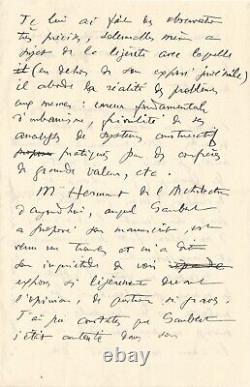 Je lui ai fait des observations
très précises, solennelles même au
sujet de la légèreté avec laquelle
il (en dehors de son exposé
il aborde la réalité des problèmes
eux mêmes : erreur fondamentale
d'urbanisme, puérilité de ses
analyses de systèmes constructifs
pratiqués par des confrères
de grande valeur, etc.
Mr Hermant de l'Architecture
d'aujourd'hui, auquel Gaubert
a proposé son manuscrit, est
venu me trouver et m'a dit
son inquiétude de voir
exposer si légèrement devant
l'opinion, de questions si graves.
J'ai pu constater que Gaubert
s'était contenté dans son